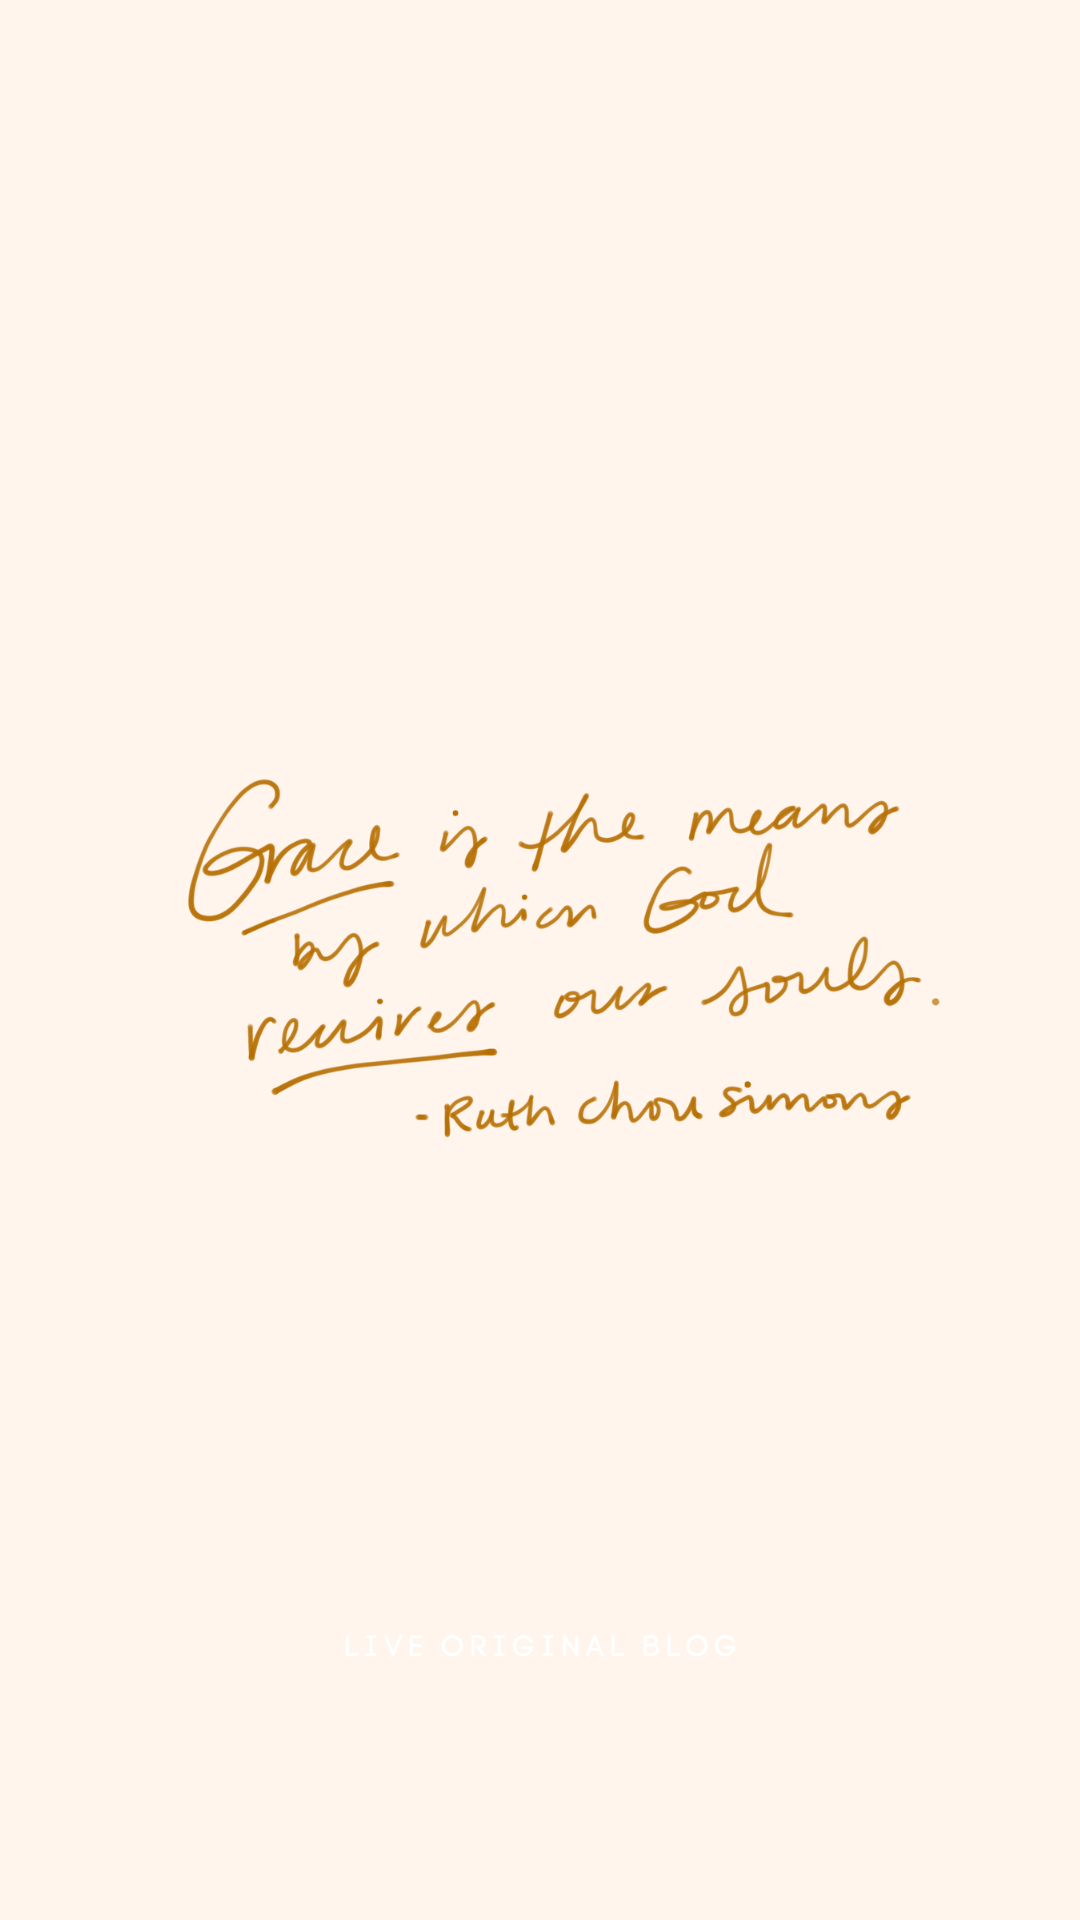 Grace is the means
by which God
revives our souls.
- Ruth chou simons
LIVE ORIGINAL BLOG